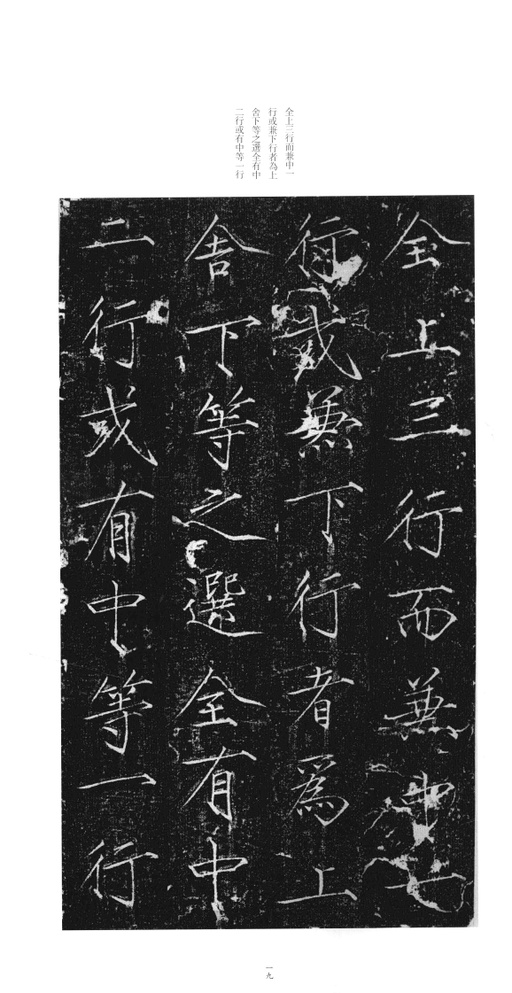 全上三行而兼中一
行或兼下行者為上
舍下等之選全有中
二行或有中等一行
全上三行而兼中
行或兼下行者為上
舍下等之選全有中
二行或有中等一行
一九